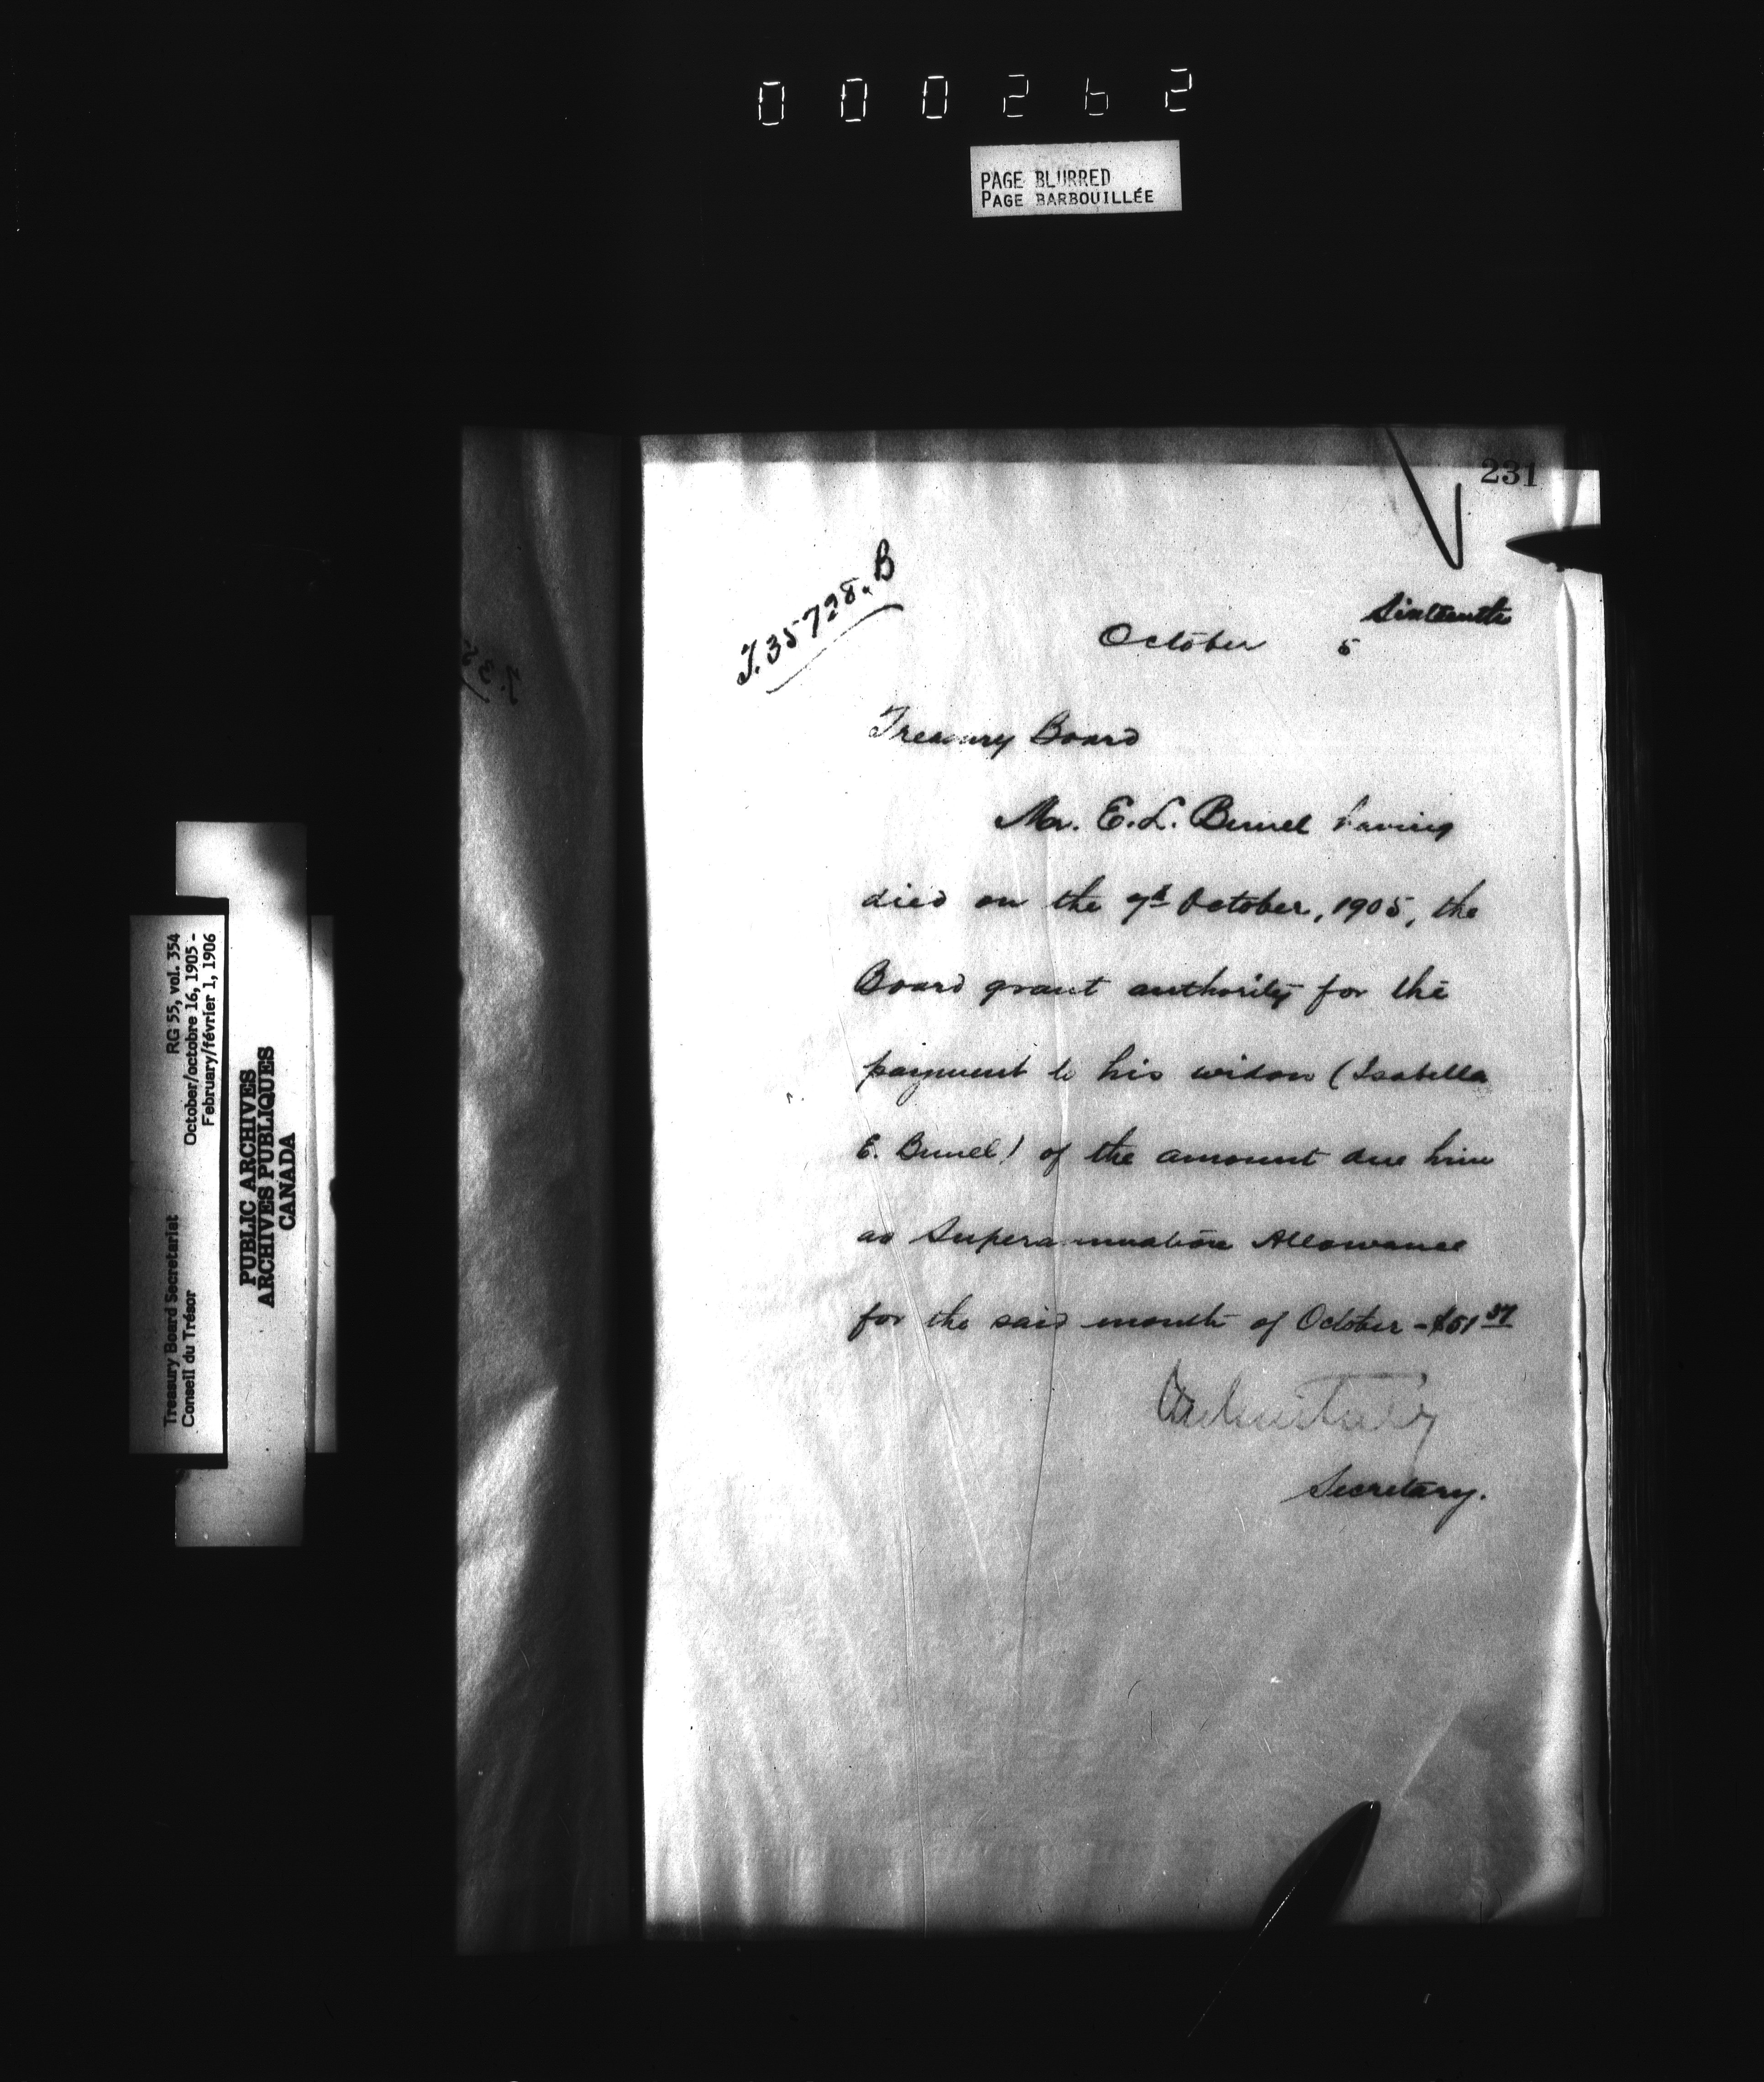 000262
PAGE BLURRED
PAGE BARBOUILLÉE
231
T.35728.B
Sixteenth
October 5
Treasury Board
Mr. E.L. having
died on the 7th October, 1905, the
Board grant authority for the
payment to his widow (Isabella
E. ) of the amount due him
as Superannuation Allowance
for the said month of October - $
Secretary.
Treasury Board Secretariat RG 55, vol. 354
Conseil du Trésor October/octobre 16, 1905 -
February/février 1, 1906
PUBLIC ARCHIVES
ARCHIVES PUBLIQUES
CANADA